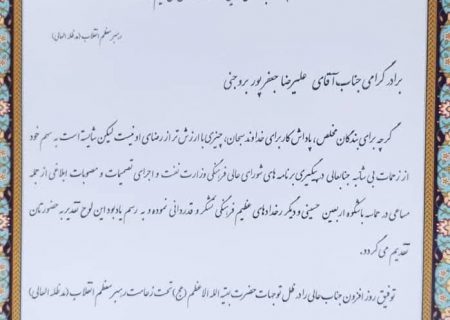 رهبر معظم انقلاب (مدظله العالی)
برادر گرامی جناب آقای علیرضا جعفرپور بروجنی
گرچه برای بندگان مخلص، پاداش کار برای خداوند سبحان، چیزی با ارزش تر از رضای او نیست لیکن شایسته است به سهم خود
از زحمات بی شائبه جنابعالی در پیگیری برنامه های شورای عالی فرهنگی وزارت نفت و اجرای تصمیمات و مصوبات ابلاغی از جمله
مساعی در حماسه باشکوه اربعین حسینی و دیگر رخدادهای عظیم فرهنگی تشکر و قدردانی نموده و به رسم یادبود این لوح تقدیر به حضورتان
تقدیم می گردد.
توفیق روز افزون جناب عالی را در ظل توجهات حضرت بقیه الله الاعظم (عج) تحت زعامت رهبر معظم انقلاب (مدظله العالی)